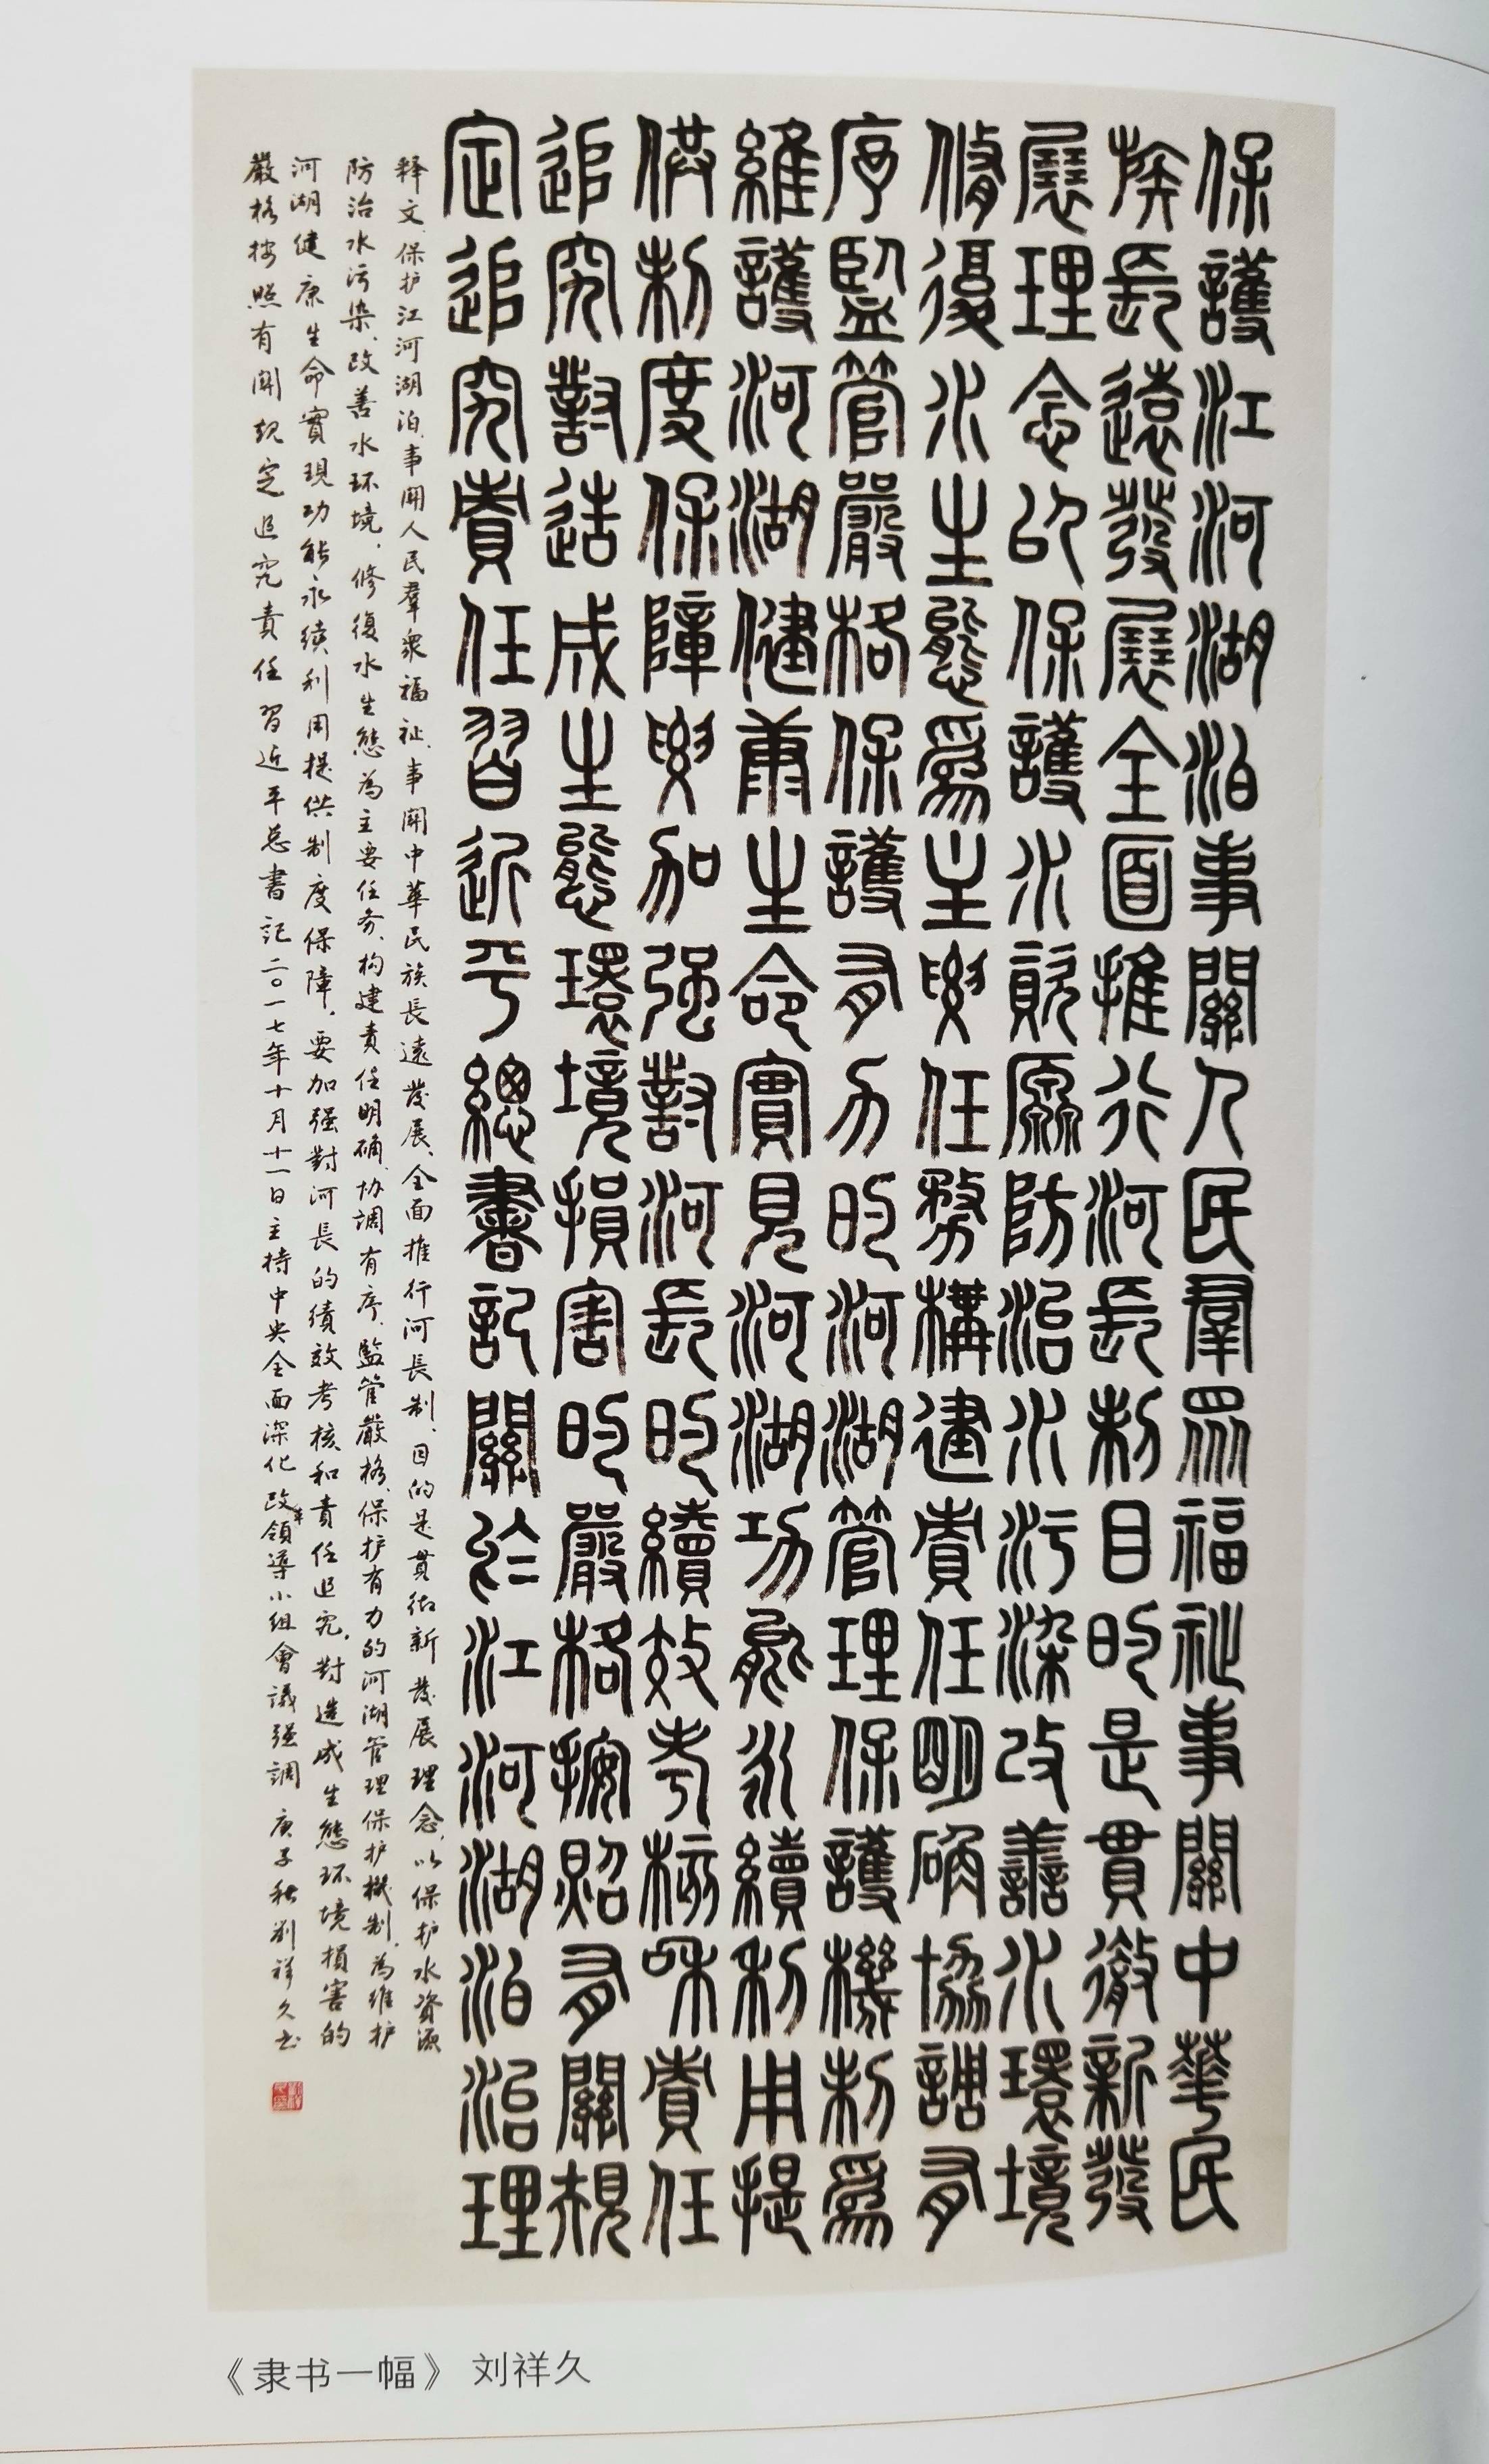 保護江河湖泊事關人民羣眾福祉事關中華民
族長遠發展全面推行河長制目的是貫徹新發
展理念以保護水資源防治水污染改善水環境
修復水生態爲主要任務構建責任明确協調有
序監管嚴格保護有力的河湖管理保護機制爲
維護河湖健康生命實見河湖功能永續利用提
供制度保障要加强對河長的續效考核和責任
追究對造成生態環境損害的嚴格按照有關規
定追究責任習近平總書記關於江河湖泊治理
释文、保护江河湖泊、事関人民羣衆福祉、事関中華民族長遠發展、全面推行河長制、目的是貫彻新發展理念、以保护水資源
防治水污染、改善水环境、修復水生態为主要任务、构建責任明确、协調有序、監管嚴格、保护有力的河湖管理保护機制、为维护
河湖健康生命實現功能永續利用提供制度保障，要加强對河長的績效考核和責任追究，對造成生態环境損害的
嚴格按照有関規定追究責任 習近平总書記二〇一七年十月十一日主持中央全面深化改革領導小組會議强調 庚子秋刘祥久书
《隶书一幅》 刘祥久